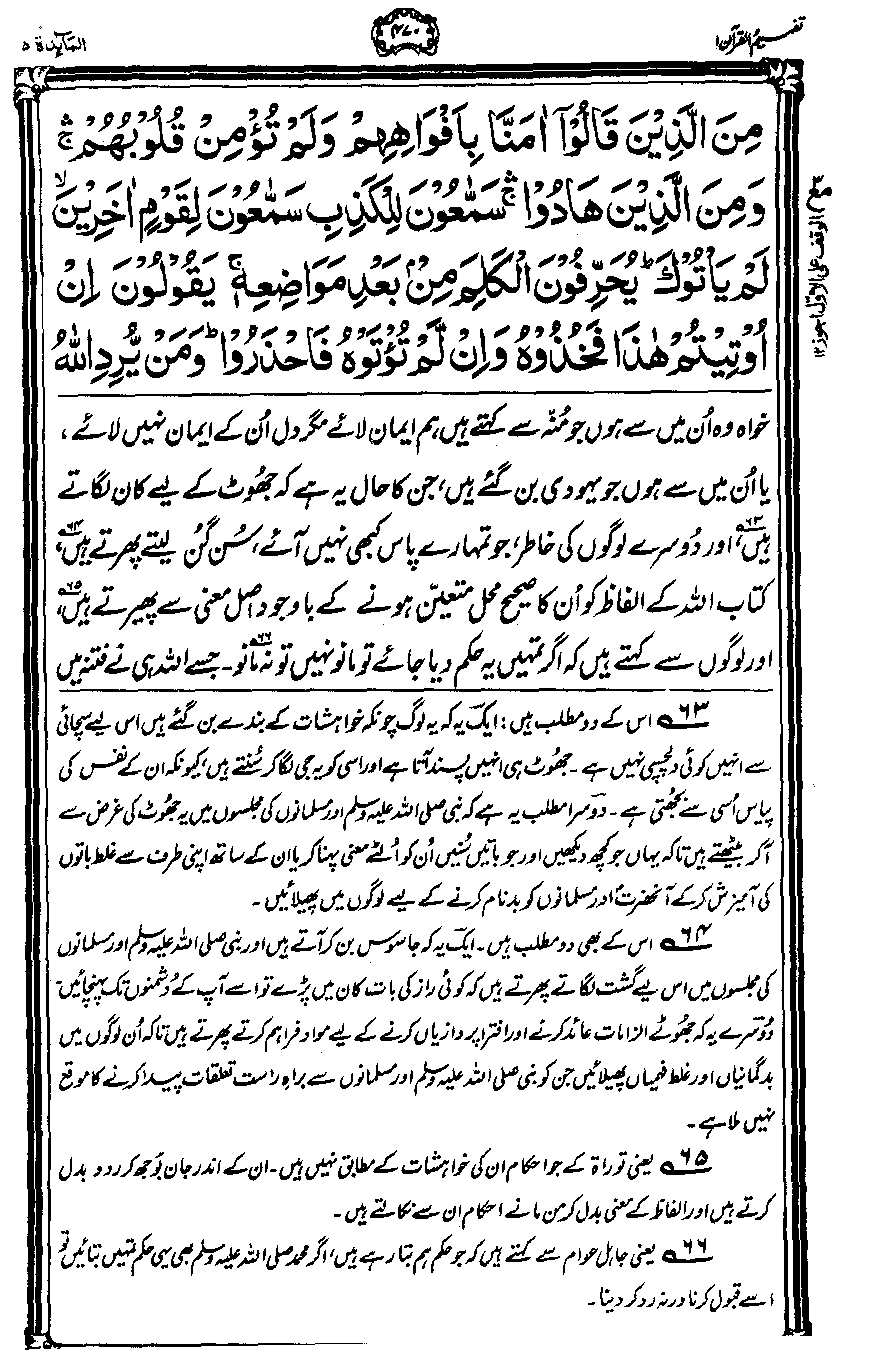 تفہیم القرآن ۱
۴۷۰
المآئدۃ ۵
مِنَ الَّذِیْنَ قَالُوْۤا اٰمَنَّا بِاَفْوَاهِهِمْ وَلَمْ تُؤْمِنْ قُلُوْبُهُمْ ۚۛ
وَمِنَ الَّذِیْنَ هَادُوْا ۚۛ سَمّٰعُوْنَ لِلْكَذِبِ سَمّٰعُوْنَ لِقَوْمٍ اٰخَرِیْنَ ۙ
لَمْ یَاْتُوْكَ ؕ یُحَرِّفُوْنَ الْكَلِمَ مِنْۢ بَعْدِ مَوَاضِعِهٖ ۚ یَقُوْلُوْنَ اِنْ
اُوْتِیْتُمْ هٰذَا فَخُذُوْهُ وَاِنْ لَّمْ تُؤْتَوْهُ فَاحْذَرُوْا ؕ وَمَنْ یُّرِدِ اللّٰهُ
مع ۳ الوقف علی الاوّل اجوز ۱۲
خواہ وہ اُن میں سے ہوں جو مُنہ سے کہتے ہیں ہم ایمان لائے مگر دل اُن کے ایمان نہیں لائے،
یا اُن میں سے ہوں جو یہودی بن گئے ہیں، جن کا حال یہ ہے کہ جھُوٹ کے لیے کان لگاتے
ہیں۶۳، اور دُوسرے لوگوں کی خاطر، جو تمہارے پاس کبھی نہیں آئے، سُن گُن لیتے پھرتے ہیں۶۴،
کتاب اللہ کے الفاظ کو اُن کا صحیح محل متعیّن ہونے کے باوجود اصل معنی سے پھیرتے ہیں۶۵،
اور لوگوں سے کہتے ہیں کہ اگر تمہیں یہ حکم دیا جائے تو مانو نہیں تو نہ مانو۶۶۔ جسے اللہ ہی نے فتنہ میں
۶۳ اس کے دو مطلب ہیں: ایک یہ کہ یہ لوگ چونکہ خواہشات کے بندے بن گئے ہیں اس لیے سچائی
سے انہیں کوئی دلچسپی نہیں ہے۔ جھوٹ ہی انہیں پسند آتا ہے اور اسی کو یہ جی لگا کر سُنتے ہیں، کیونکہ ان کے نفس کی
پیاس اُسی سے بجھتی ہے۔ دوسرا مطلب یہ ہے کہ نبی صلی اللہ علیہ وسلم اور مسلمانوں کی مجلسوں میں یہ جھوٹ کی غرض سے
آکر بیٹھتے ہیں تاکہ یہاں جو کچھ دیکھیں اور جو باتیں سُنیں اُن کو اُلٹے معنی پہنا کر یا ان کے ساتھ اپنی طرف سے غلط باتوں
کی آمیزش کرکے آنحضرتؐ اور مسلمانوں کو بدنام کرنے کے لیے لوگوں میں پھیلائیں۔
۶۴ اس کے بھی دو مطلب ہیں۔ ایک یہ کہ جاسوس بن کر آتے ہیں اور نبی صلی اللہ علیہ وسلم اور مسلمانوں
کی مجلسوں میں اس لیے گشت لگاتے پھرتے ہیں کہ کوئی راز کی بات کان میں پڑے تو اسے آپ کے دُشمنوں تک پہنچائیں۔
دُوسرے یہ کہ جھُوٹے الزامات عائد کرنے اور افترا پردازیاں کرنے کے لیے مواد فراہم کرتے پھرتے ہیں تاکہ اُن لوگوں میں
بدگمانیاں اور غلط فہمیاں پھیلائیں جن کو نبی صلی اللہ علیہ وسلم اور مسلمانوں سے براہِ راست تعلقات پیدا کرنے کا موقع
نہیں ملا ہے۔
۶۵ یعنی توراۃ کے جو احکام ان کی خواہشات کے مطابق نہیں ہیں۔ ان کے اندر جان بُوجھ کر ردو بدل
کرتے ہیں اور الفاظ کے معنی بدل کر من مانے احکام ان سے نکالتے ہیں۔
۶۶ یعنی جاہل عوام سے کہتے ہیں کہ جو حکم ہم بتا رہے ہیں، اگر محمد صلی اللہ علیہ وسلم بھی یہی حکم تمہیں بتائیں تو
اسے قبول کرنا ورنہ رد کر دینا۔